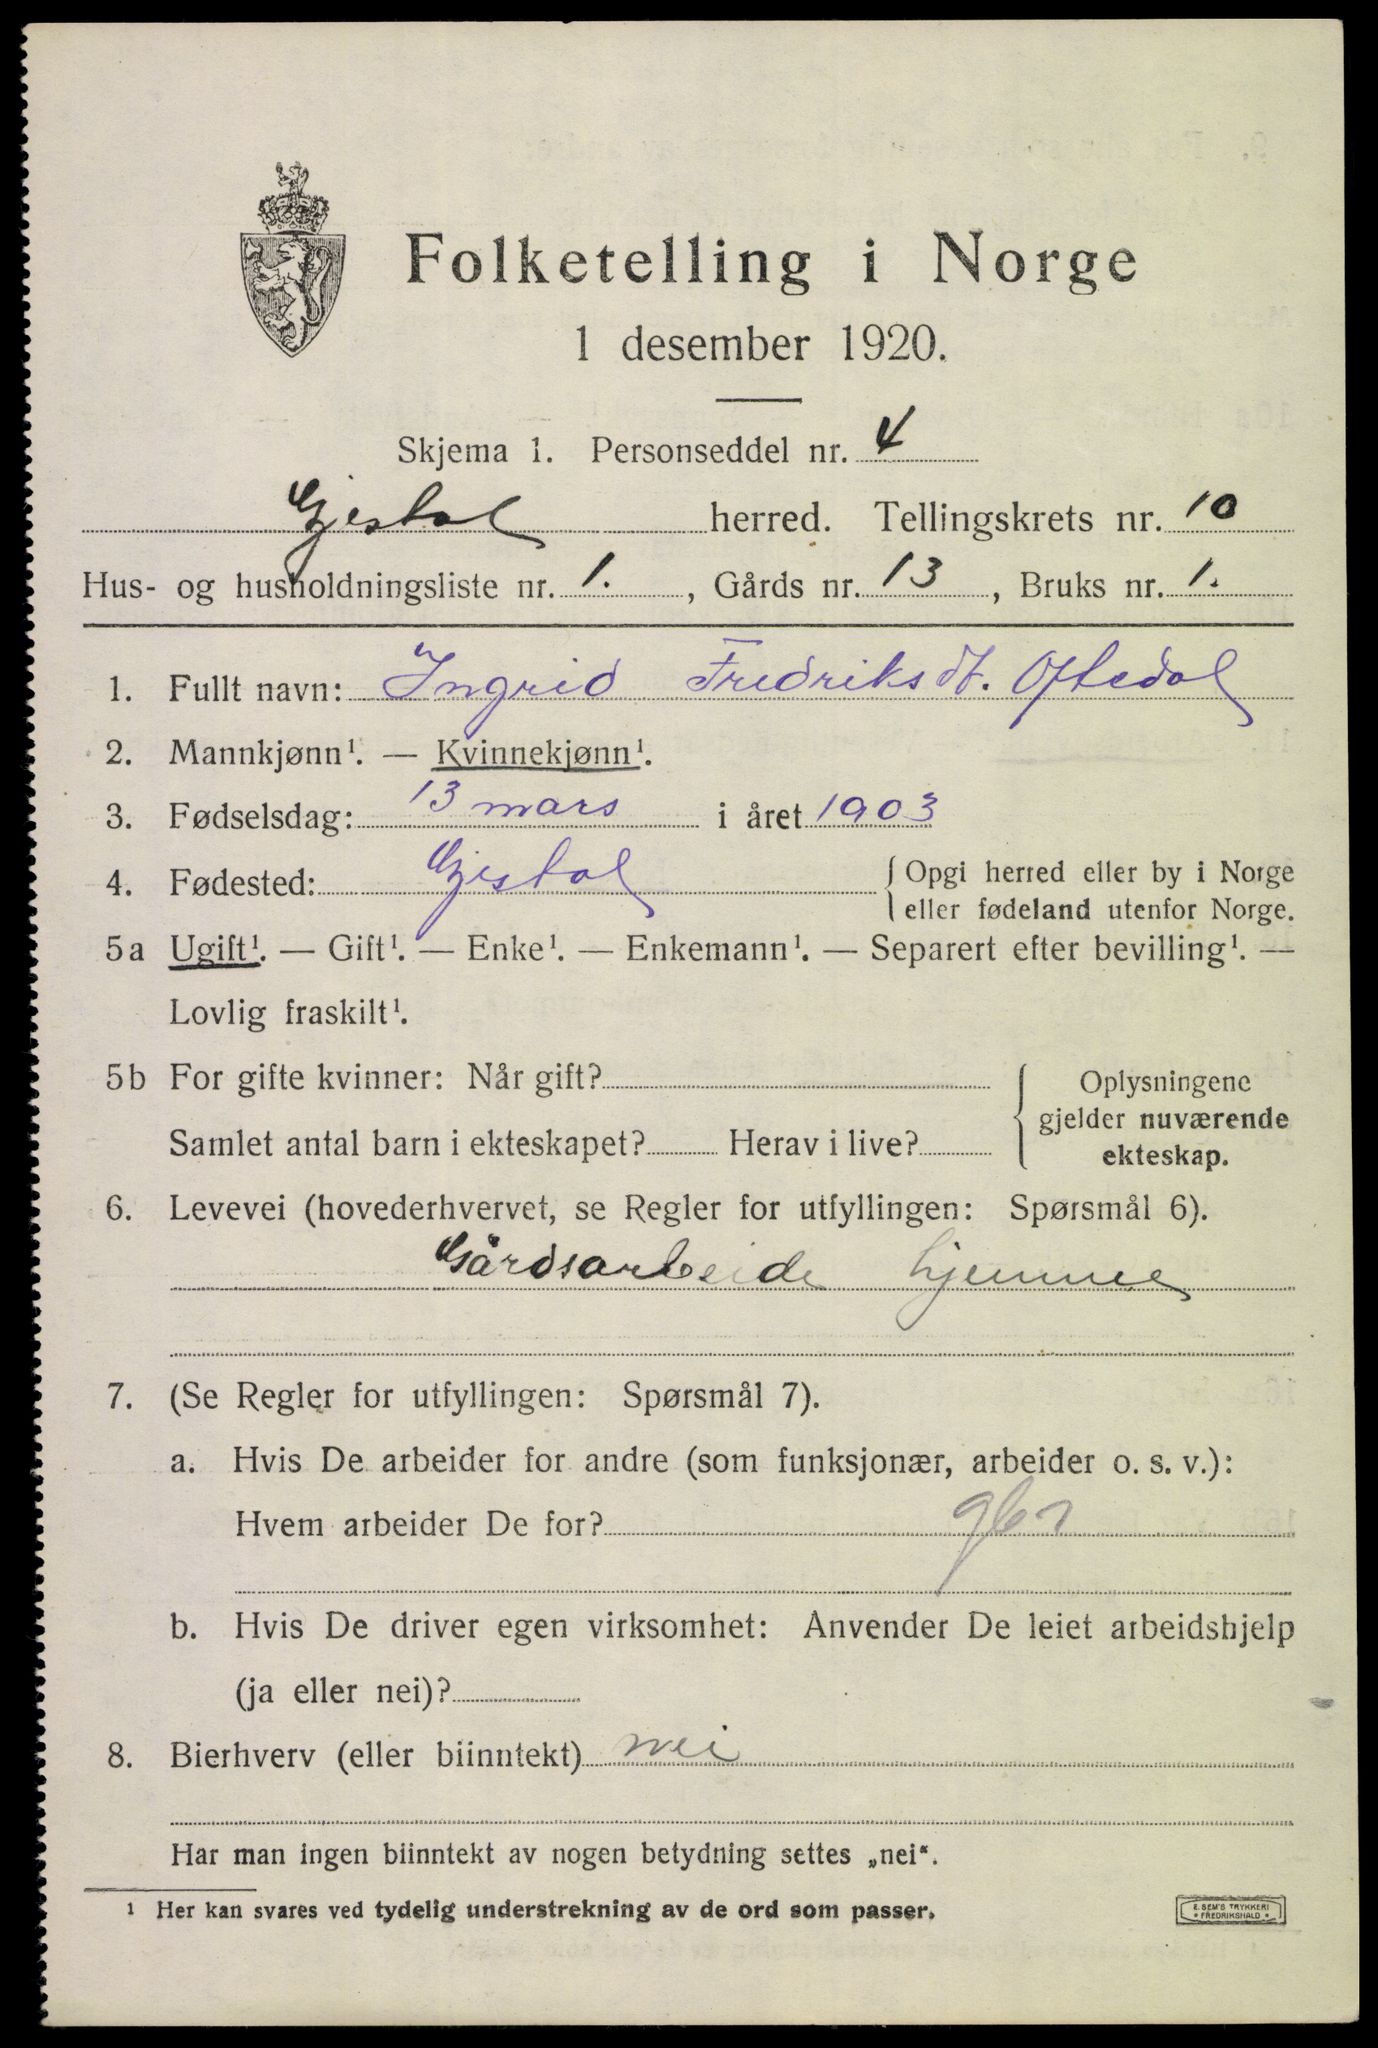 Folketelling i Norge
1 desember 1920.
Skjema 1. Personseddel nr. 4
Gjestal herred. Tellingskrets nr. 10
Hus- og husholdningsliste nr. 1. , Gårds nr. 13 , Bruks nr. 1.
1. Fullt navn: Ingrid Fredriksdt. Oftedal
2. Mannkjønn¹. — Kvinnekjønn¹.
3. Fødselsdag: 13 mars i året 1903
4. Fødested: Gjestal { Opgi herred eller by i Norge
eller fødeland utenfor Norge.
5a Ugift¹. — Gift¹. — Enke¹. — Enkemann¹. — Separert efter bevilling¹. —
Lovlig fraskilt¹.
5b For gifte kvinner: Når gift?
Samlet antal barn i ekteskapet? Herav i live?
{ Oplysningene
gjelder nuværende
ekteskap.
6. Levevei (hovederhvervet, se Regler for utfyllingen: Spørsmål 6).
Gårdsarbeide hjemme
7. (Se Regler for utfyllingen: Spørsmål 7).
a. Hvis De arbeider for andre (som funksjonær, arbeider o. s. v.):
Hvem arbeider De for?
b. Hvis De driver egen virksomhet: Anvender De leiet arbeidshjelp
(ja eller nei)?
8. Bierhverv (eller biinntekt) nei
Har man ingen biinntekt av nogen betydning settes „nei“.
¹ Her kan svares ved tydelig understrekning av de ord som passer.
E. SEM'S TRYKKERI
* FREDRIKSHALD *